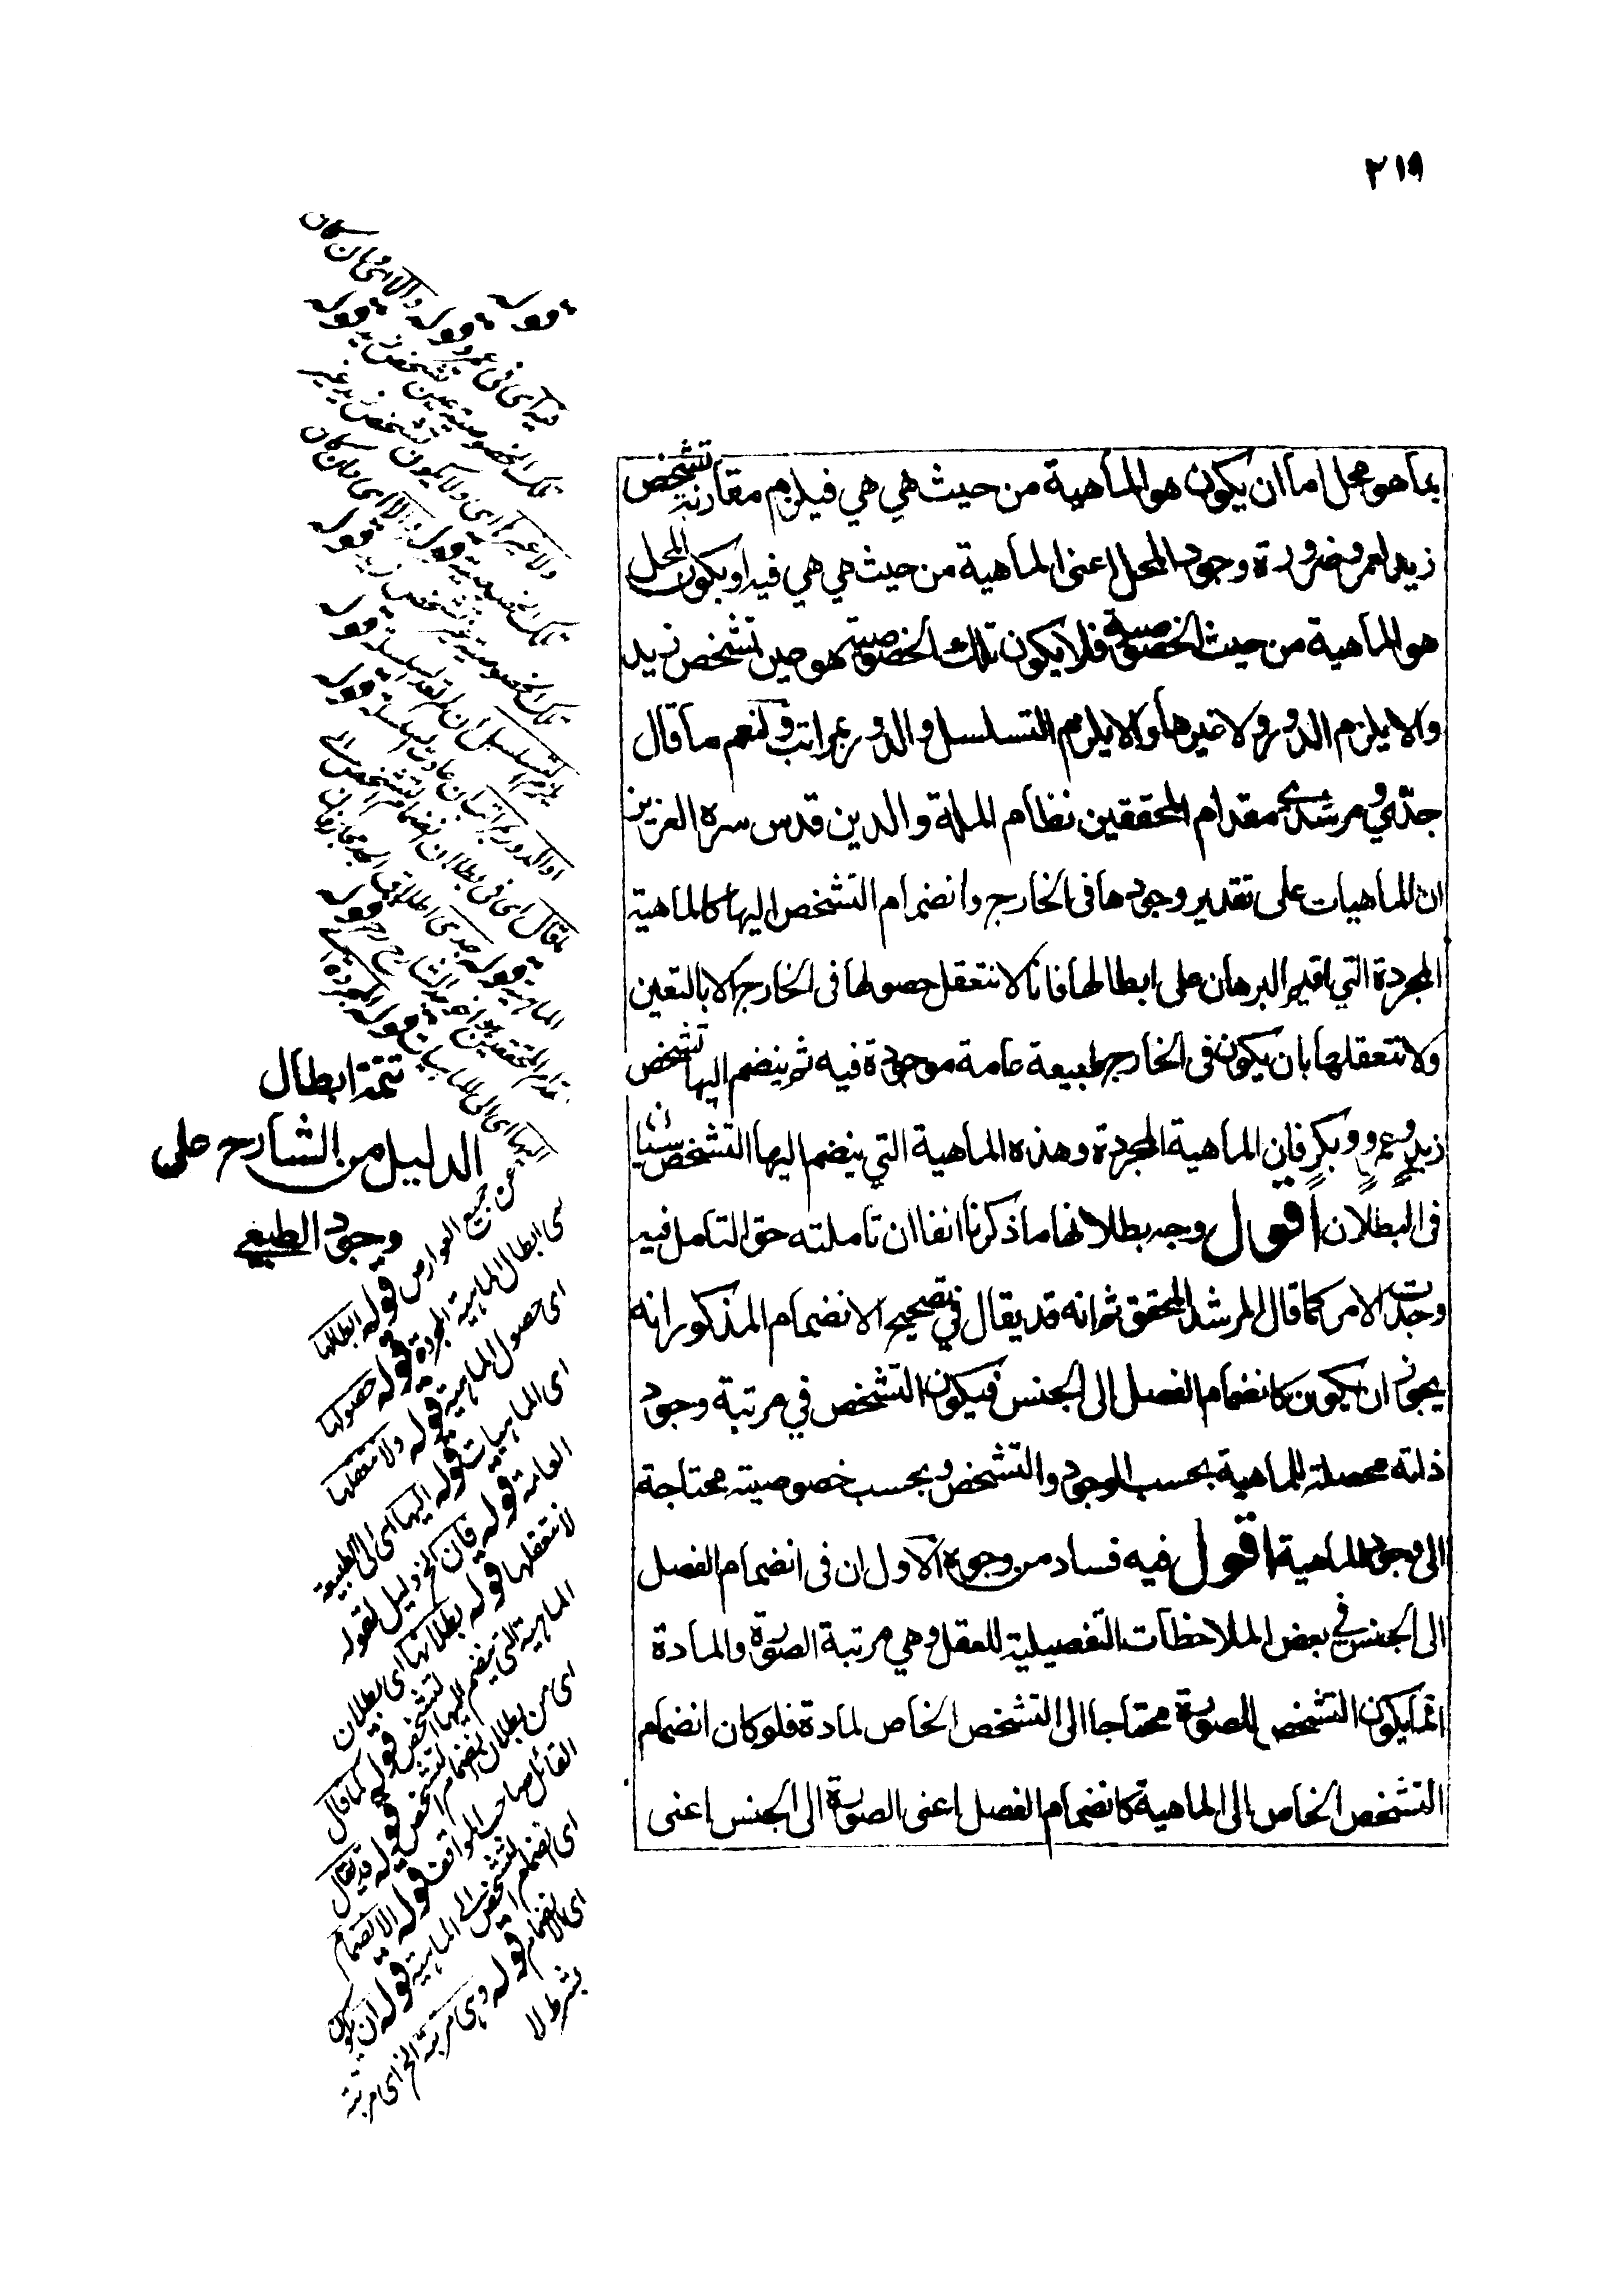 ٢١٩
بما هو محل اما ان يكون هو الماهية من حيث هي هي فيلزم مقارنة تشخص
زيد لعمرو ضرورة وجود المحل اعنى الماهية من حيث هي هي فيه او يكون المحل
هو الماهية من حيث الخصوصية فلا يكون تلك الخصوصية هو عين تشخص زيد
والا يلزم الدور ولا غيرها والا يلزم التسلسل والدور بمراتب ولنعم ما قال
جدّي ومرشدي مقدام المحققين نظام الملة والدين قدس سره العزيز
ان الماهيات على تقدير وجودها فى الخارج وانضمام التشخص اليها كالماهية
المجردة التي اقيم البرهان على ابطالها فانا لا نتعقل حصولها فى الخارج الا بالتعين
ولا نتعقلها بان يكون فى الخارج طبيعة عامة موجودة فيه ثم ينضم اليها تشخص
زيدٍ وعمرٍو وبكرٍ فان الماهية المجردة وهذه الماهية التي ينضم اليها التشخص سيّان
فى البطلان اقول وجه بطلانها ما ذكرنا انفا ان تاملته حق التامل فيه
وجدت الامر كما قال المرشد المحقق ثم انه قد يقال في تصحيح الانضمام المذكور انه
يجوز ان يكون كانضمام الفصل الى الجنس فيكون التشخص في مرتبة وجود
ذاته محصلة للماهية بحسب الوجود والتشخص وبحسب خصوصيته محتاجة
الى وجود الماهية اقول فيه فساد من وجوه الاول ان فى انضمام الفصل
الى الجنس في بعض الملاحظات التفصيلية للعقل وهي مرتبة الصورة والمادة
انما يكون التشخص للصورة محتاجا الى التشخص الخاص لمادة فلو كان انضمام
التشخص الخاص الى الماهية كانضمام الفصل اعنى الصورة الى الجنس اعنى
تتمة ابطال
الدليل من الشارح على
وجود الطبعي
قوله
فيه اى فى عمرو قوله والا اى وان كان
تلك الخصوصية عين تشخص زيد قوله
ولا غيرها اى ولا يكون تشخص زيد غير
تلك الخصوصية قوله والا اى وان كان
تلك الخصوصية غير تشخص زيد قوله
يلزم التسلسل ان لم تعد السلسلة قوله
او الدور بمراتب ان عادت السلسلة قوله
ما قال اى فى بطلان انضمام التشخص الى
الماهية قوله جدى
مقدام المحققين قوله المجردة اى
عن جميع العوارض قوله ابطالها
اى ابطال الماهية المجردة قوله حصولها
اى حصول الماهية قوله ولا نتعقلها
اى الماهيات قوله اليها اى الى الطبيعة
العامة قوله فان الخ دليل لقوله
لا نتعقلها قوله بطلانها اى بطلان
الماهية التى ينضم اليها التشخص قوله كما قال
اى من بطلان انضمام التشخص قوله قد يقال
القائل صاحب المواقف قوله الانضمام
اى انضمام التشخص الى الماهية قوله ان يكون
اى الانضمام قوله وهى مرتبة الخ اى مرتبة
بشرط لا